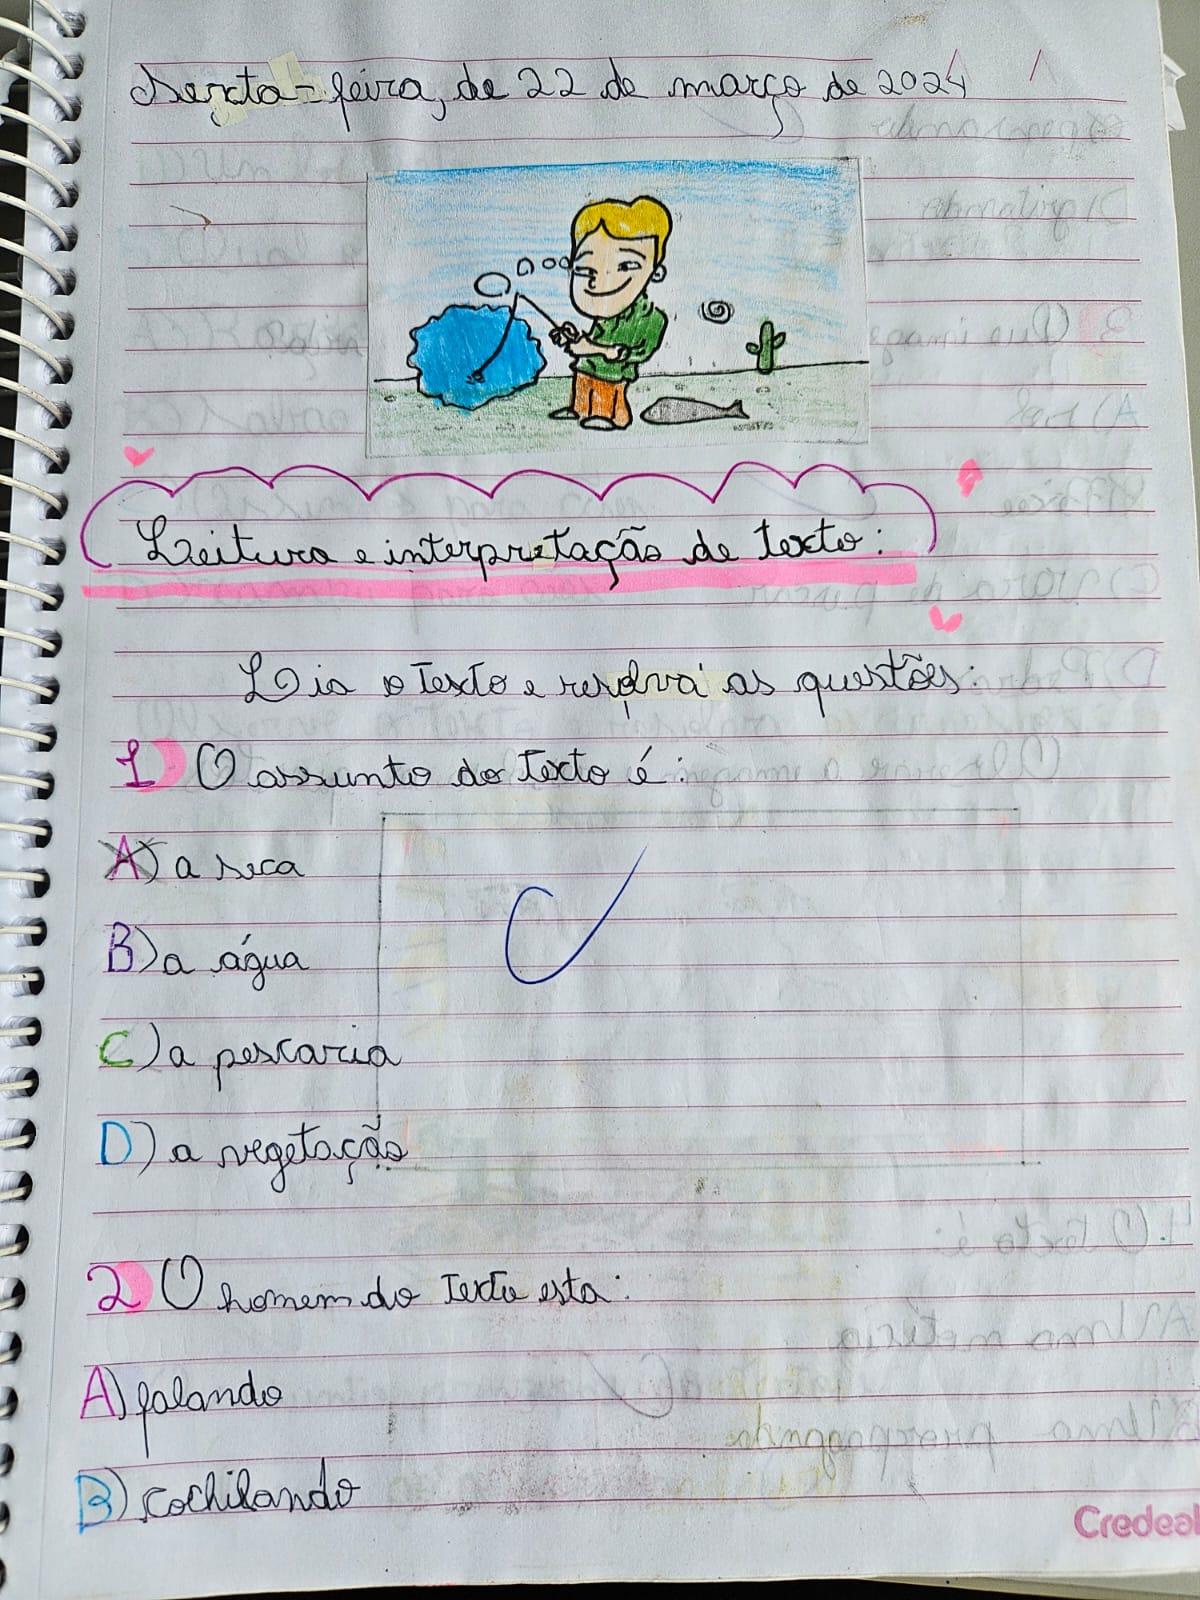 Sexta-feira, de 22 de março de 2024
Leitura e interpretação de texto:
Leia o texto e resolva as questões:
1) O assunto do texto é:
A) a seca
B) a água
C) a pescaria
D) a vegetação
2) O homem do texto esta:
A) falando
B) cochilando
Credeal